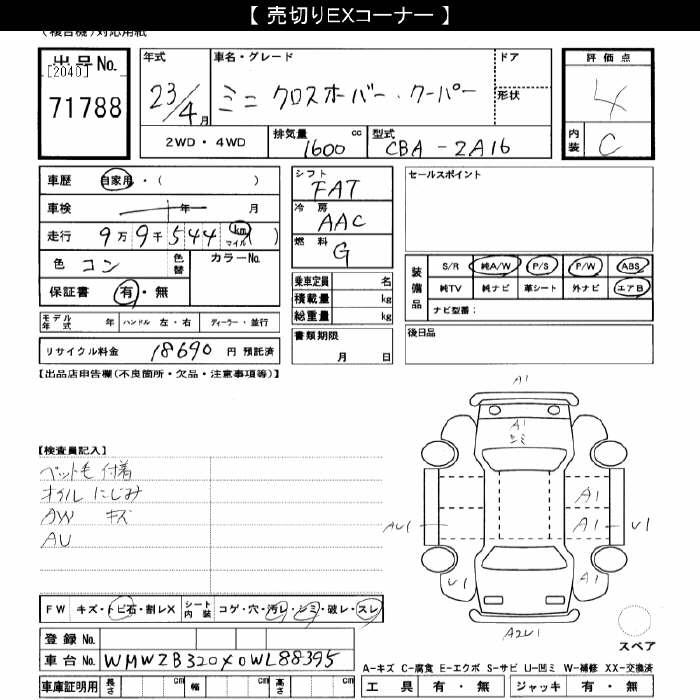 【 売切りEXコーナー 】
(複合機)対応用紙
出品No.
[2040]
71788
年式
23/4月
車名・グレード
ミニ クロスオーバー・クーパー
ドア
形状
評価点
4
内装
C
2WD・4WD
排気量 1600 cc
型式 CBA-ZA16
車歴 自家用・( )
車検 年 月
走行 9万9千544 km マイル ( )
色 コン
色替
カラーNo.
保証書 有・無
シフト
FAT
冷房
AAC
燃料
G
乗車定員 名
積載量 kg
総重量 kg
セールスポイント
装備品
S/R 純A/W P/S P/W ABS
純TV 純ナビ 革シート 外ナビ エアB
ナビ型番:
モデル年式 年 ハンドル 左・右 ディーラー・並行
リサイクル料金 18690 円 預託済
書類期限
月 日
後日品
【出品店申告欄(不良箇所・欠品・注意事項等)】
A1
A1
シミ
【検査員記入】
ペット毛 付着
オイル にじみ
AW キズ
AU
A1
AU1 A1 U1
U1 A1
A2U1
スペア
FW キズ・トビ石・割レX
シート内装 コゲ・穴・汚レ・シミ・破レ・スレ
登録No.
車台No. WMWZB320X0WL88395
A-キズ C-腐食 E-エクボ S-サビ U-凹ミ W-補修 XX-交換済
車庫証明用 長さ cm 幅 cm 高さ cm
工具 有・無 ジャッキ 有・無